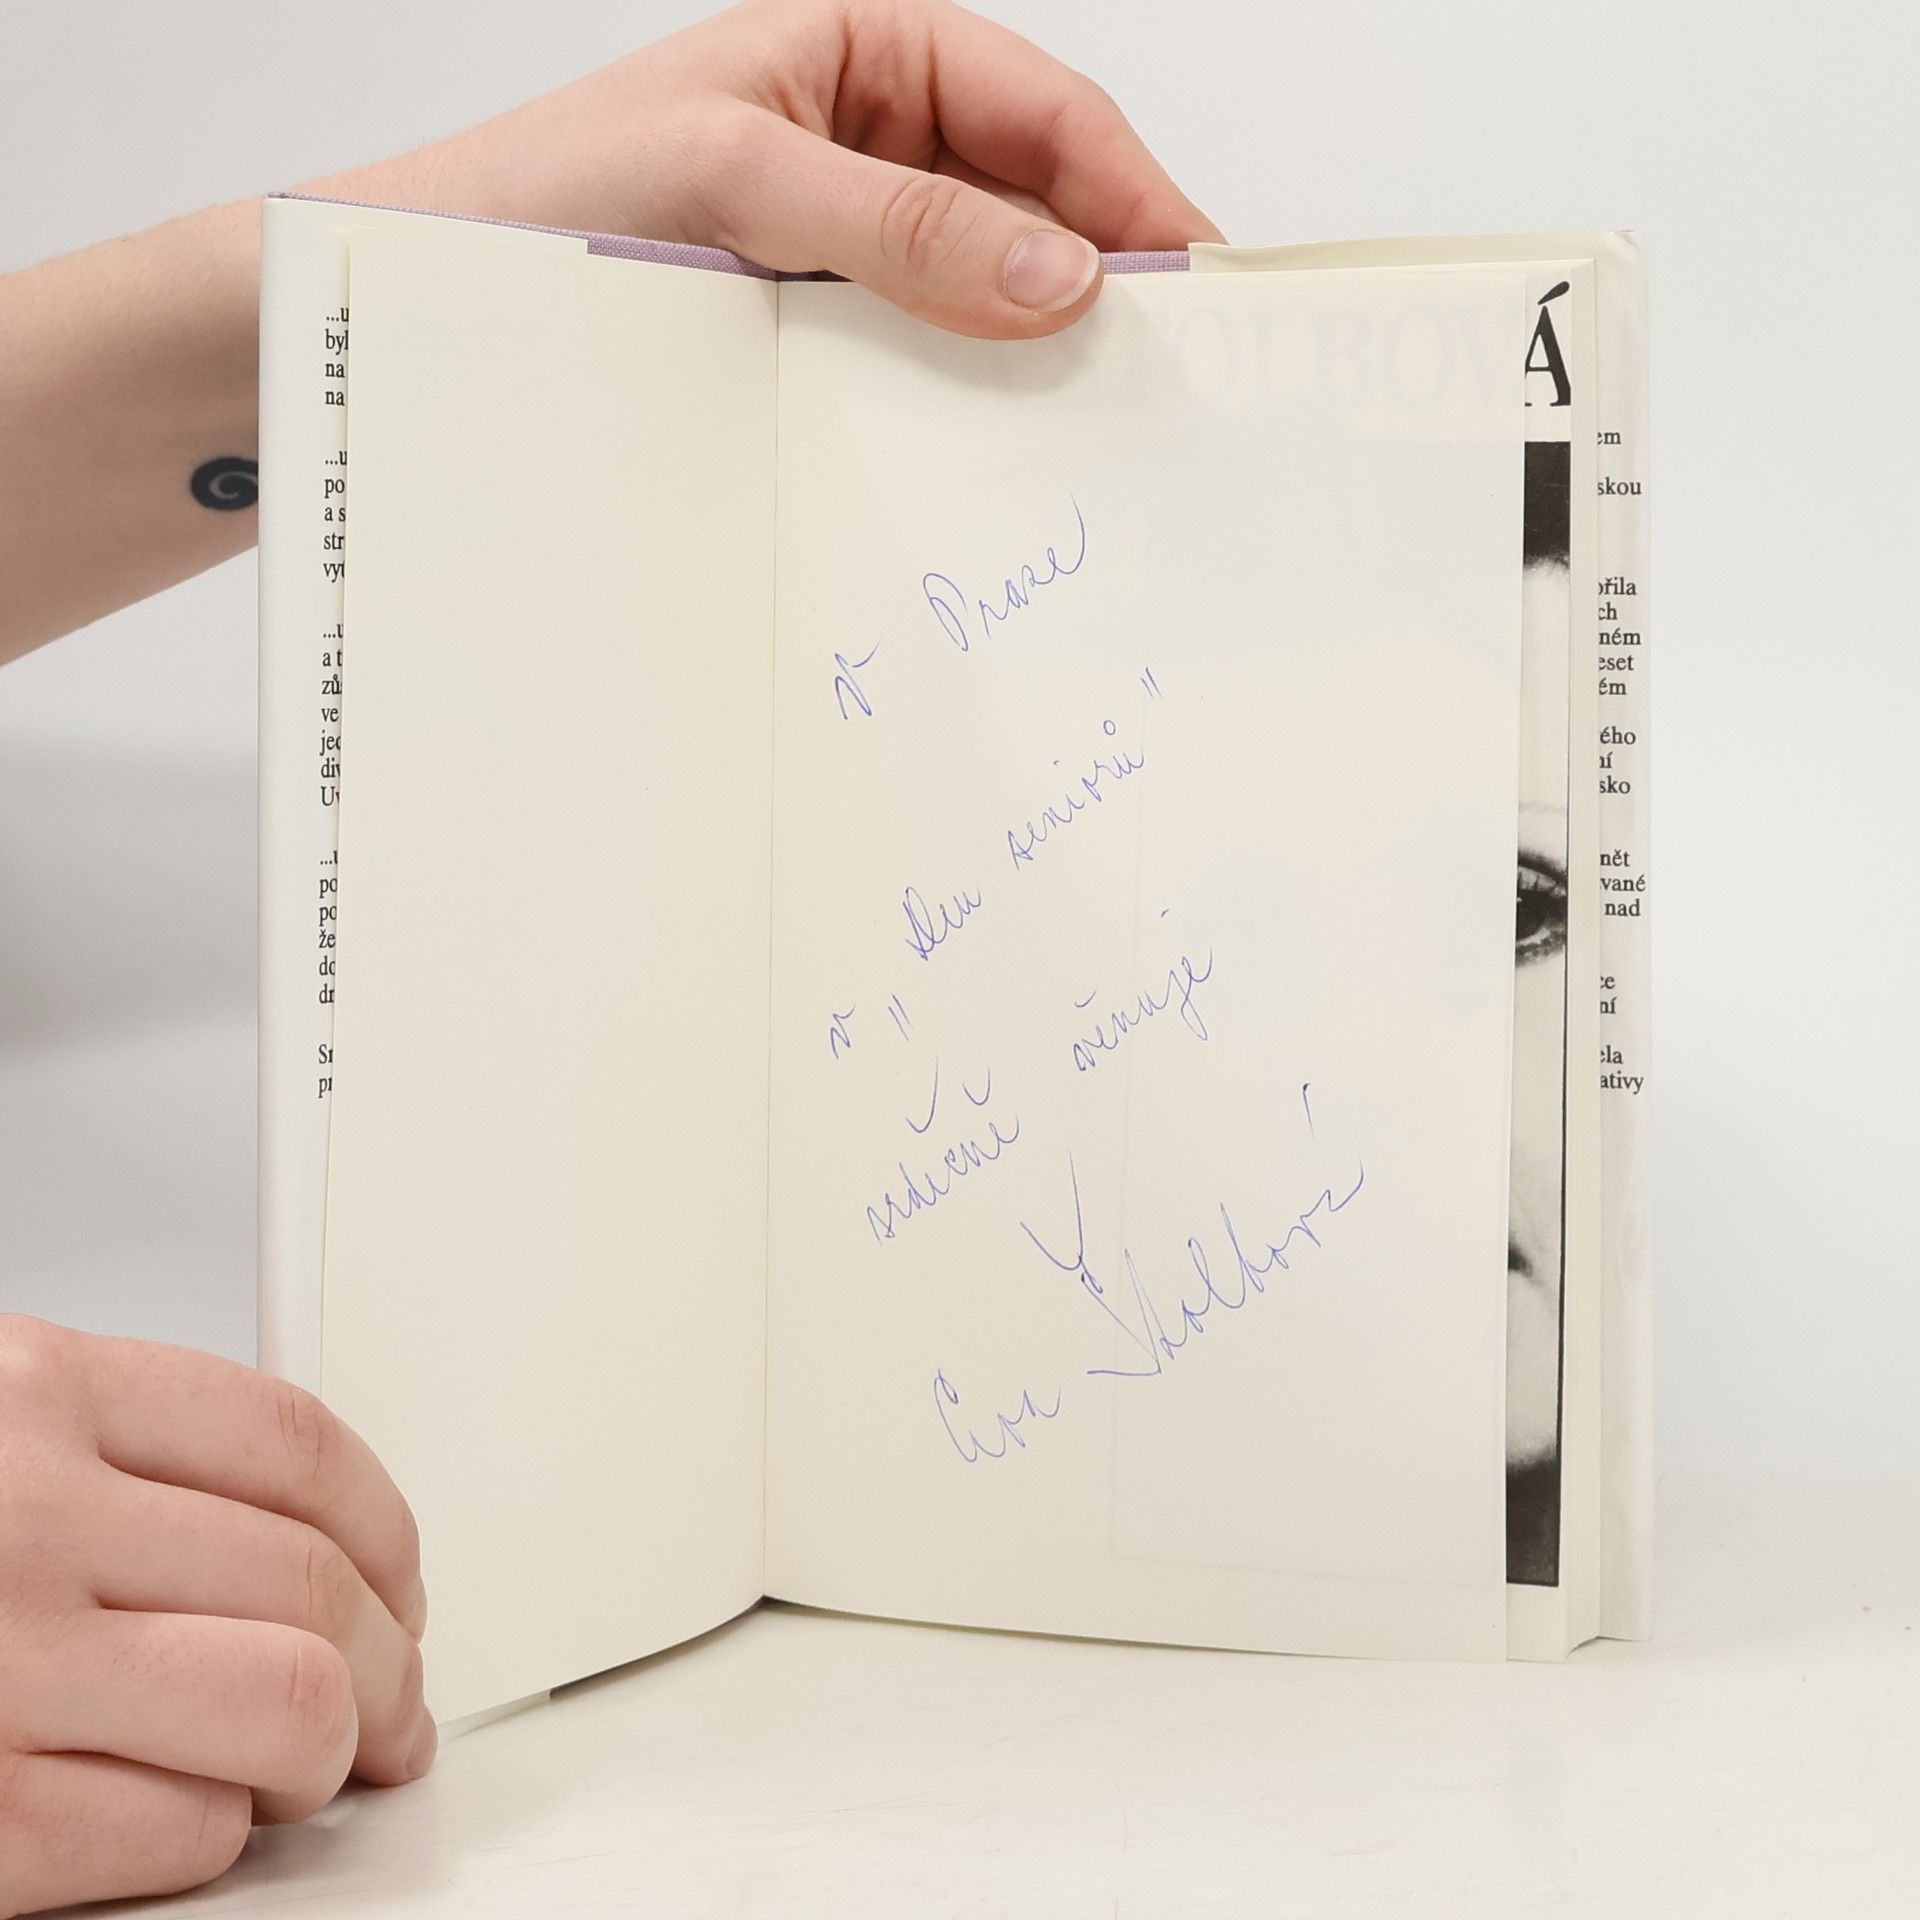 ...u
byl
na
na
...u
po
a s
str
vyt
...u
a t
zůs
ve
jed
div
...u
po
po
že
do
dr
V Praze
v "den seniorů"
srdečně věnuje
Eva Štolbová
TOLBOVÁ
em
skou
ořila
ch
ném
eset
ém
ého
ní
sko
nět
vané
nad
ce
ní
ela
ativy